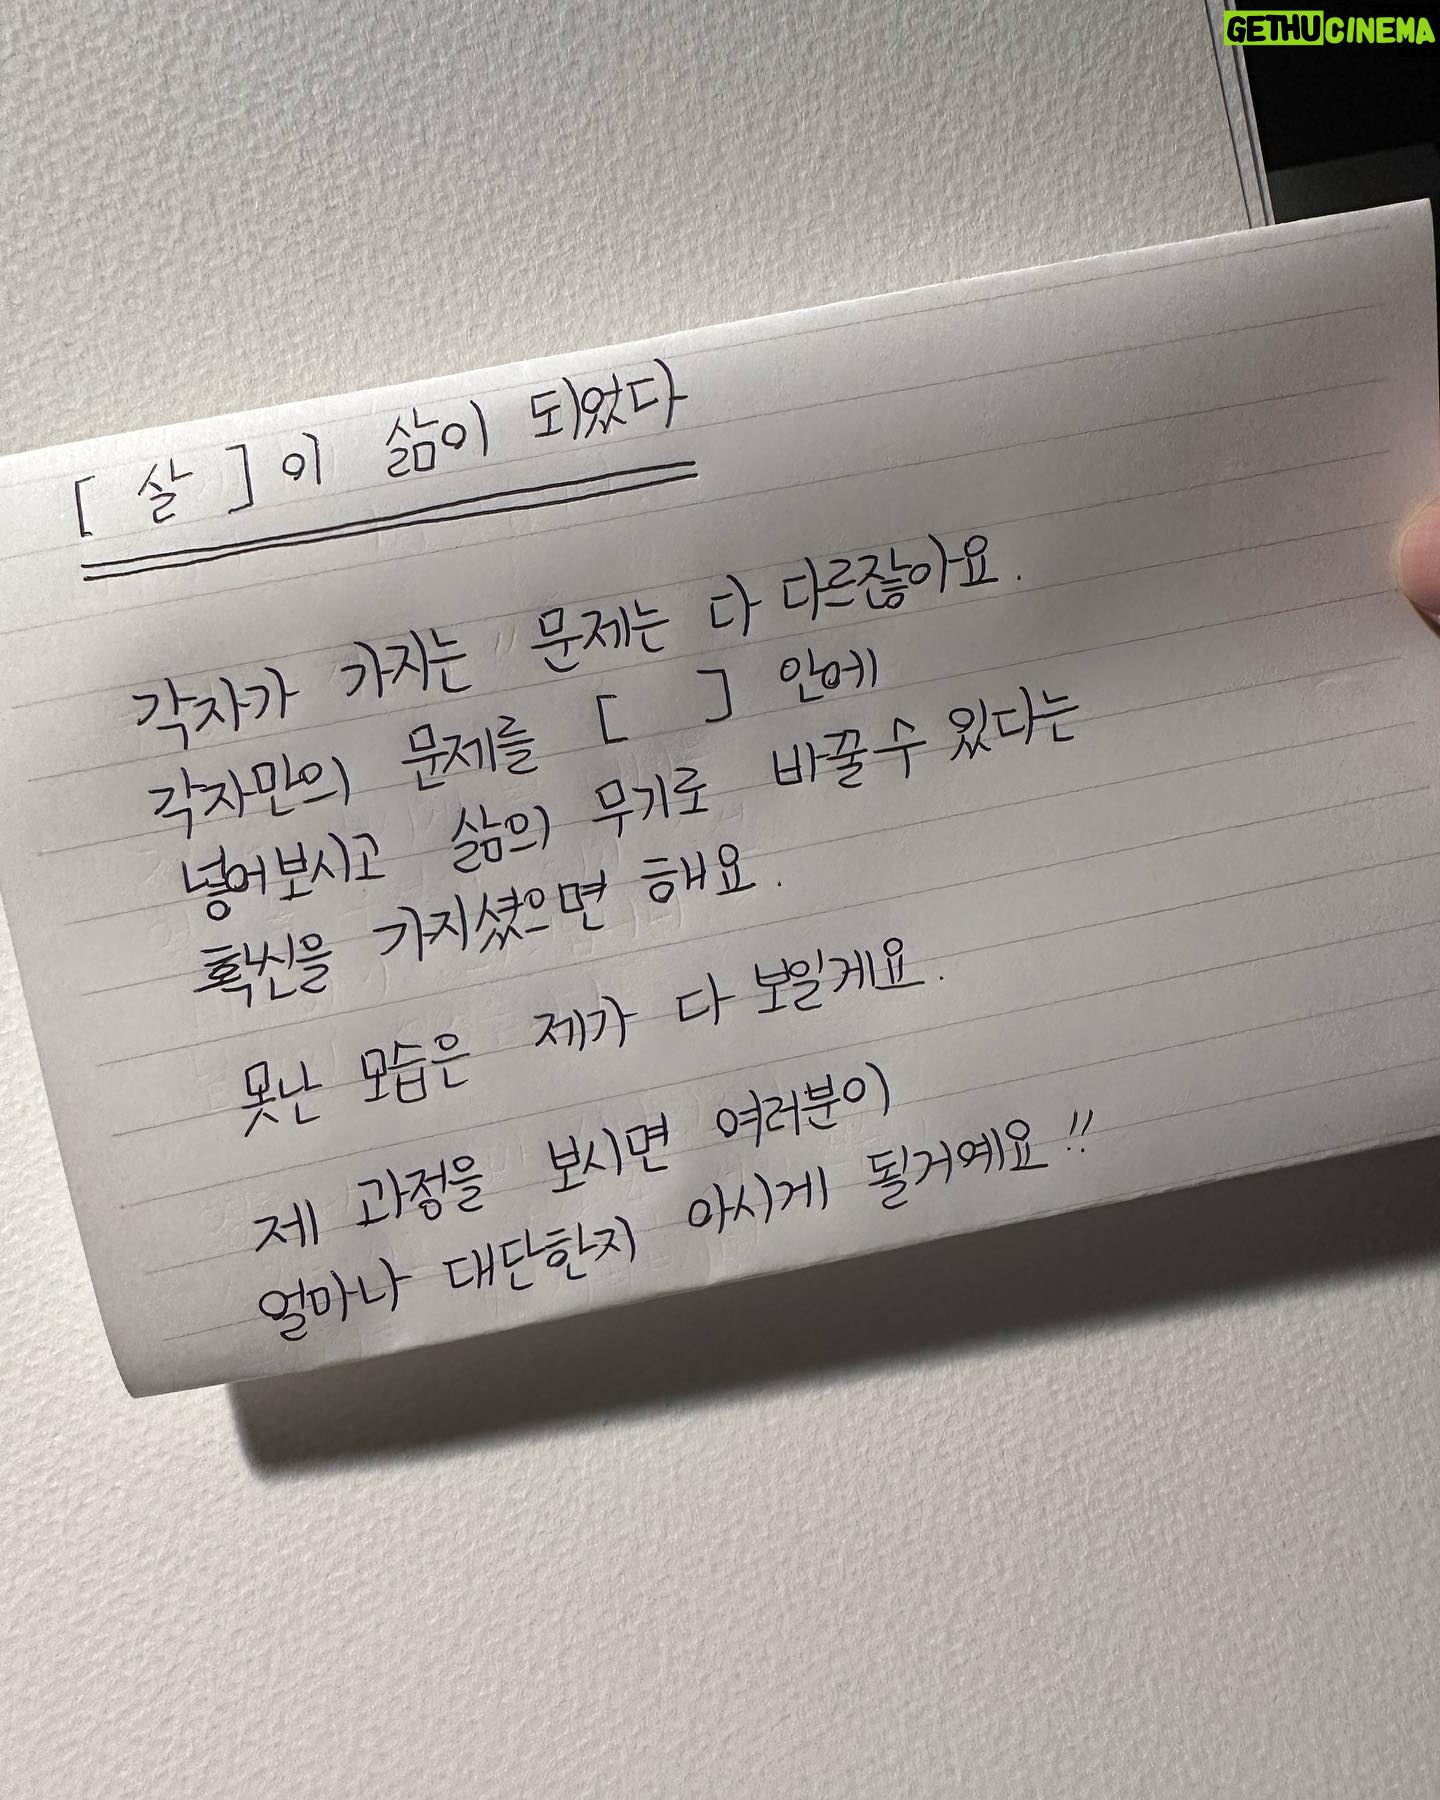 GETHUCINEMA
[ 살 ] 이 삶이 되었다
각자가 가지는 문제는 다 다르잖아요.
각자만의 문제를 [ ] 안에
넣어보시고 삶의 무기로 바꿀 수 있다는
확신을 가지셨으면 해요.
못난 모습은 제가 다 보일게요.
제 과정을 보시면 여러분이
얼마나 대단한지 아시게 될거예요!!